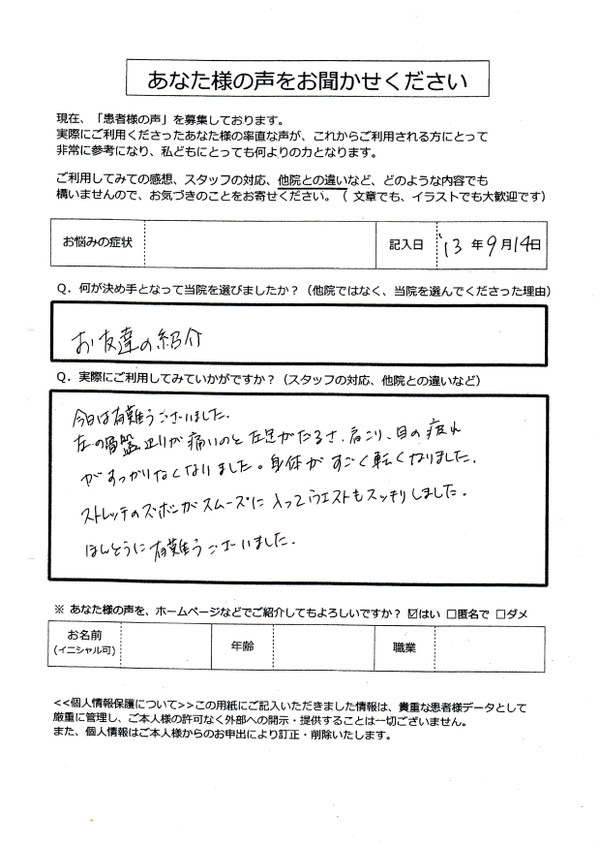 あなた様の声をお聞かせください
現在、「患者様の声」を募集しております。
実際にご利用くださったあなた様の率直な声が、これからご利用される方にとって
非常に参考になり、私どもにとっても何よりの力となります。
ご利用してみての感想、スタッフの対応、他院との違いなど、どのような内容でも
構いませんので、お気づきのことをお寄せください。（文章でも、イラストでも大歓迎です）
お悩みの症状
記入日 '13 年 9 月 14 日
Q．何が決め手となって当院を選びましたか？（他院ではなく、当院を選んでくださった理由）
お友達の紹介
Q．実際にご利用してみていかがですか？（スタッフの対応、他院との違いなど）
今日は有難うございました。
左の骨盤辺りが痛いのと左足がだるさ、肩こり、目の疲れ
がすっかりなくなりました。身体がすごく転くなりました。
ストレッチのズボンがスムーズに入ってウエストもスッキリしました。
ほんとうに有難うございました。
※ あなた様の声を、ホームページなどでご紹介してもよろしいですか？ ☑はい □匿名で □ダメ
お名前
(イニシャル可)
年齢
職業
<<個人情報保護について>>この用紙にご記入いただきました情報は、貴重な患者様データとして
厳重に管理し、ご本人様の許可なく外部への開示・提供することは一切ございません。
また、個人情報はご本人様からのお申出により訂正・削除いたします。